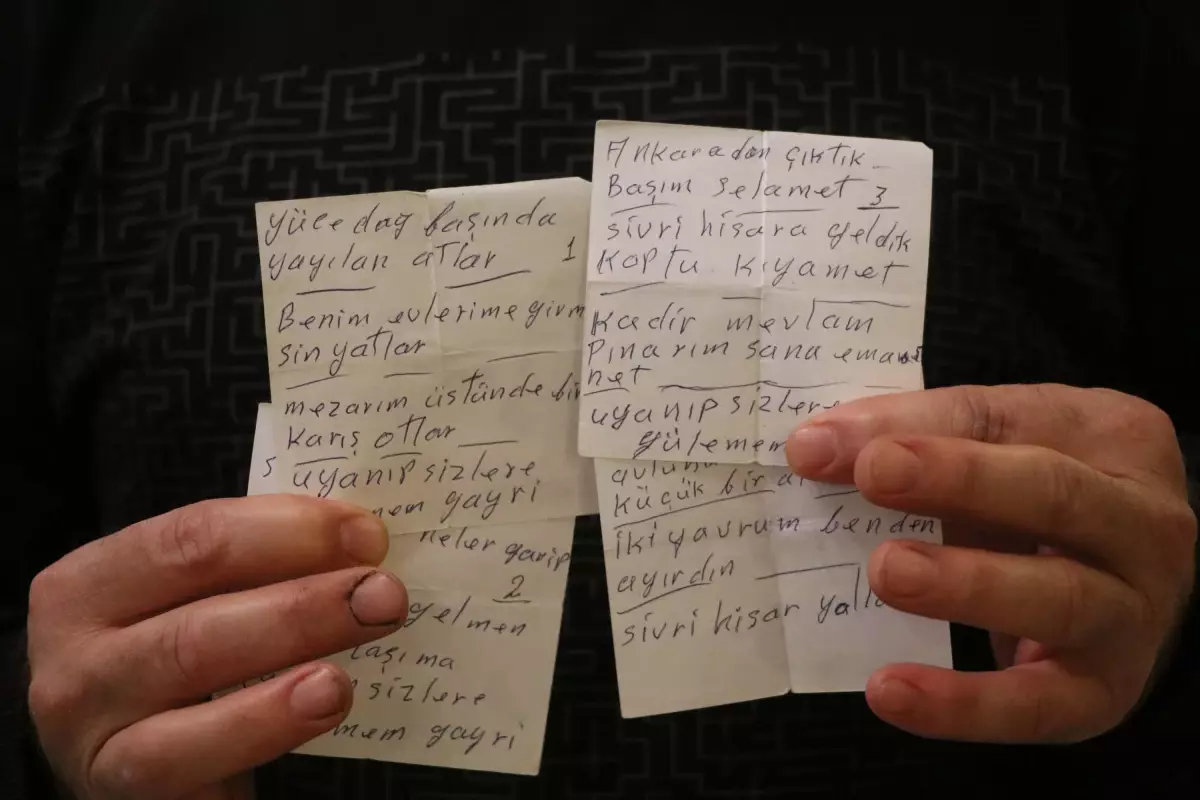 yüce dağ başında
yayılan atlar 1
Benim evlerime girm
sin yatlar
mezarım üstünde bir
karış otlar
5 uyanıp sizlere
mem gayri
neler garip
2
gelmen
taşıma
sizlere
mem gayri
Ankaradan çıktık
Başım selamet 3
sivri hisara geldik
Koptu kıyamet
Kadir mevlam
Pınarım sana ema
net
uyanıp sizlere
gülemem
küçük bir
iki yavrum benden
ayırdın
sivri hisar